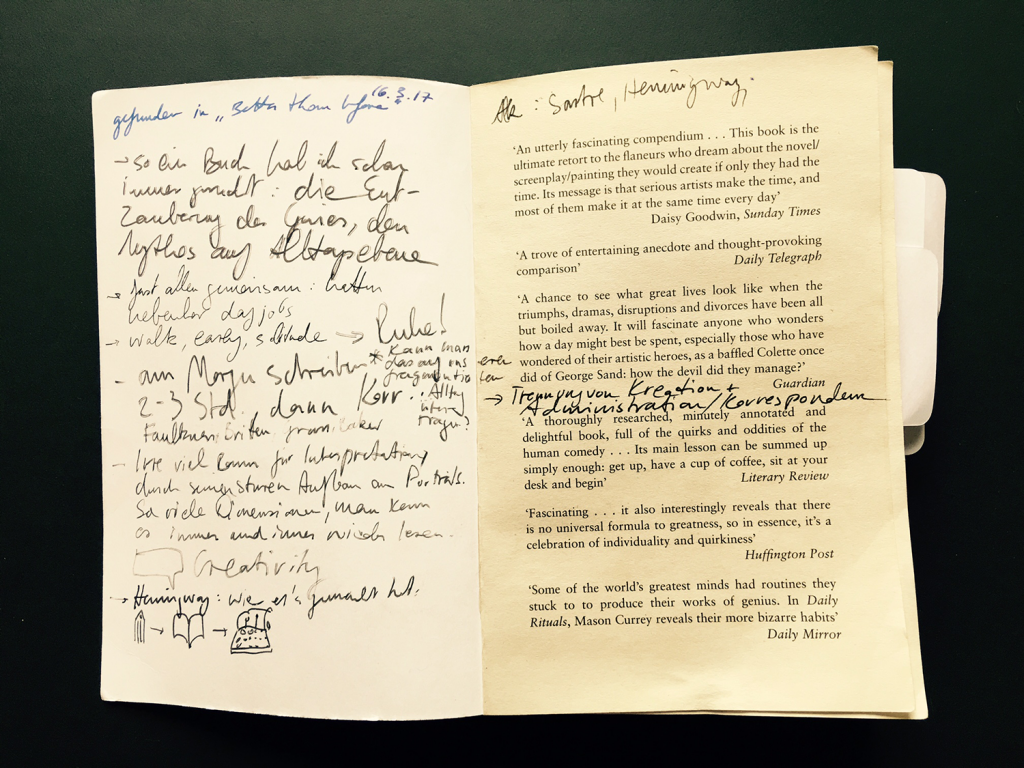 gefunden in „Better than before" 16.3.17
→ so ein Buch hab ich schon
immer gesucht: die Ent-
Zauberung des Genies, den
Mythos auf Alltagsebene
→ fast allen gemeinsam: hatten
nebenher dayjobs
→ walk, early, solitude → Ruhe!
- am Morgen schreiben * Kann man
das auf uns
2-3 Std., dann Korr.. Alltag
Faulkner, Britten,
- Irre viel Raum für Interpretation
durch Aufbau an Porträts.
So viele Dimensionen, man kann
es immer und immer wieder lesen.
Creativity
→ Hemingway: wie er's gemacht hat:
: Sartre, Hemingway,
'An utterly fascinating compendium . . . This book is the
ultimate retort to the flaneurs who dream about the novel/
screenplay/painting they would create if only they had the
time. Its message is that serious artists make the time, and
most of them make it at the same time every day'
Daisy Goodwin, Sunday Times
'A trove of entertaining anecdote and thought-provoking
comparison'
Daily Telegraph
'A chance to see what great lives look like when the
triumphs, dramas, disruptions and divorces have been all
but boiled away. It will fascinate anyone who wonders
how a day might best be spent, especially those who have
wondered of their artistic heroes, as a baffled Colette once
did of George Sand: how the devil did they manage?'
Guardian
→ Trennung von Kreation +
Administration/Korrespondenz
'A thoroughly researched, minutely annotated and
delightful book, full of the quirks and oddities of the
human comedy . . . Its main lesson can be summed up
simply enough: get up, have a cup of coffee, sit at your
desk and begin'
Literary Review
'Fascinating . . . it also interestingly reveals that there
is no universal formula to greatness, so in essence, it's a
celebration of individuality and quirkiness'
Huffington Post
'Some of the world's greatest minds had routines they
stuck to to produce their works of genius. In Daily
Rituals, Mason Currey reveals their more bizarre habits'
Daily Mirror